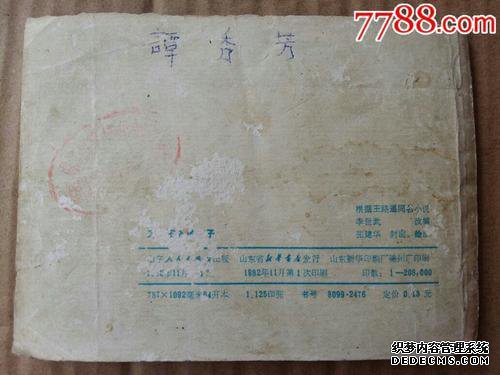 7788.com
譚香芳
根据王路遥同名小说
李世武 改编
王建华 封面、绘画
山东人民出版社出版 山东省新华书店发行 山东新华印刷厂德州厂印刷
1982年11月第1次印刷 印数：1—208,000
787×1092毫米64开本 1.125印张 书号 8099·2476 定价 0.13元
织梦内容管理系统
DEDECMS.COM